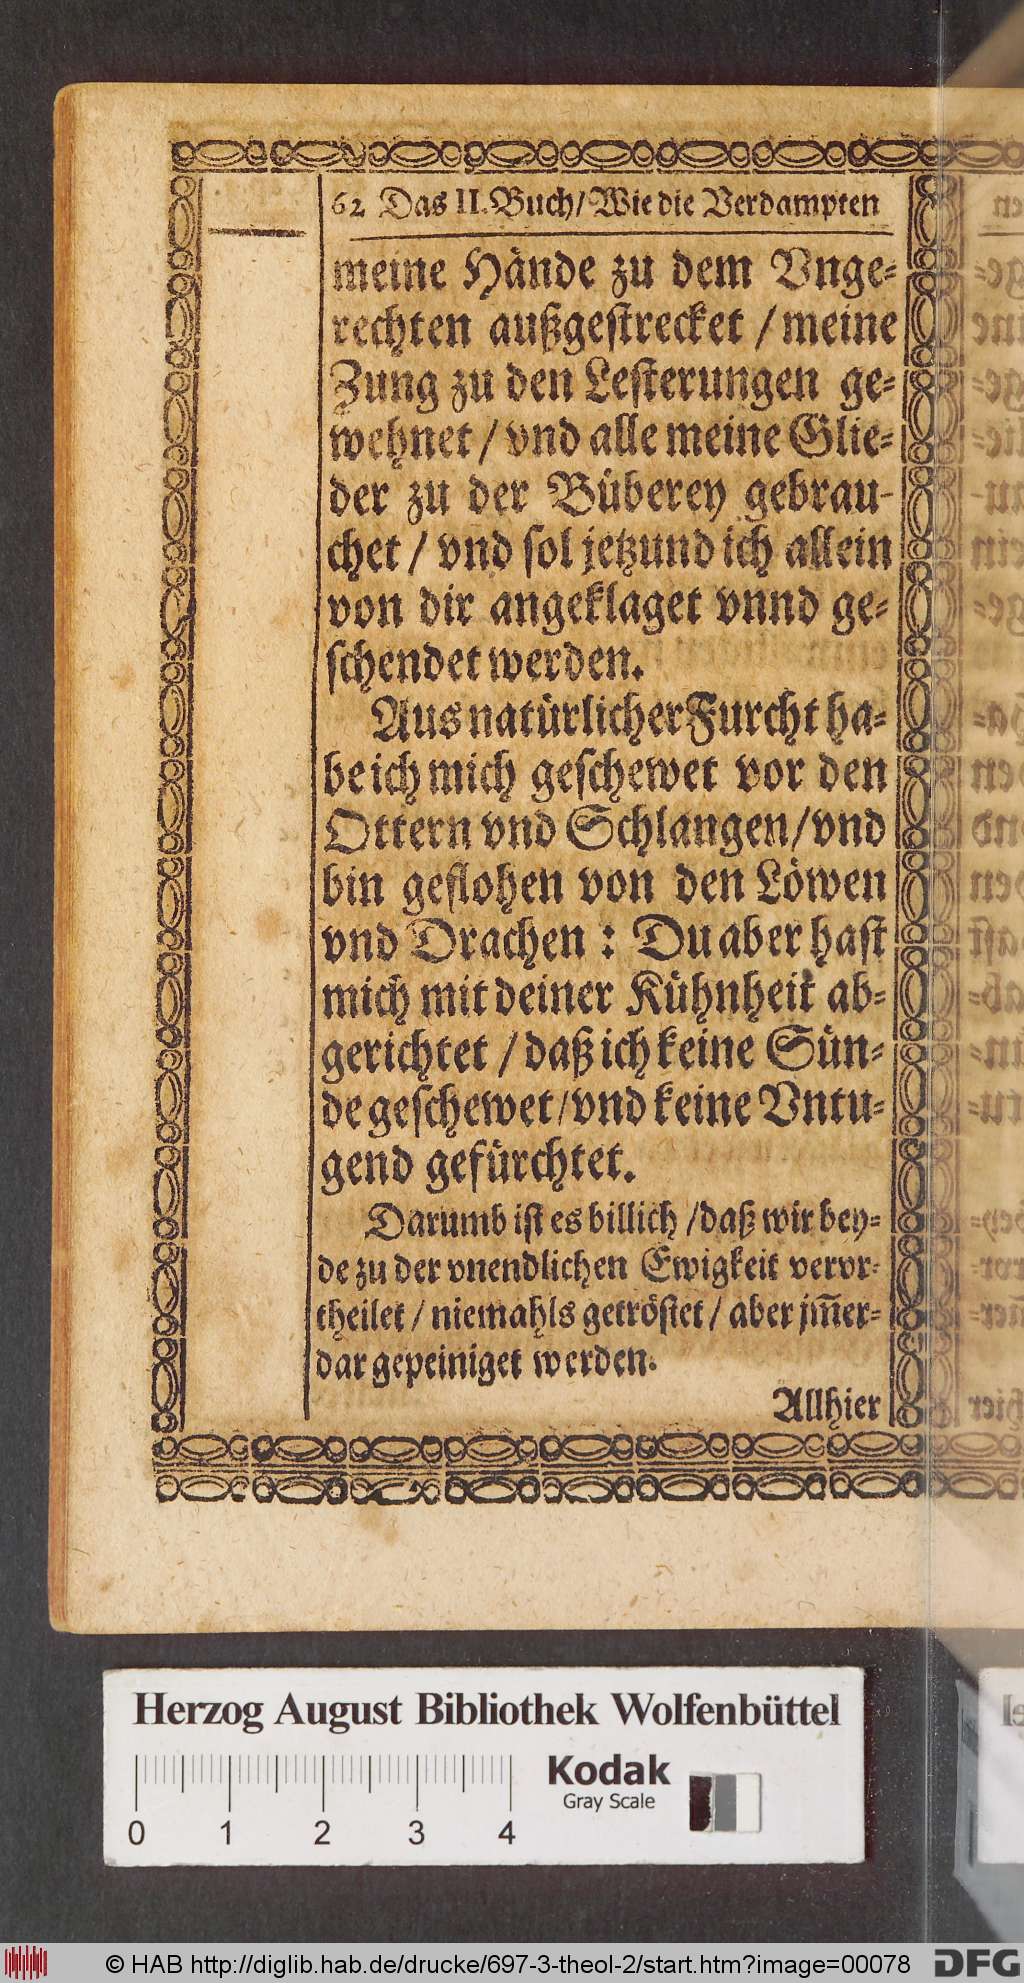 62 Das II. Buch/ Wie die Verdampten
meine Hände zu dem Vnge-
rechten außgestrecket / meine
Zung zu den Lesterungen ge-
wehnet / vnd alle meine Glie-
der zu der Büberey gebrau-
chet / vnd sol jetzund ich allein
von dir angeklaget vnnd ge-
schendet werden.
Aus natürlicher Furcht ha-
be ich mich geschewet vor den
Ottern vnd Schlangen/ vnd
bin geflohen von den Löwen
vnd Drachen : Du aber hast
mich mit deiner Kühnheit ab-
gerichtet / daß ich keine Sün-
de geschewet/ vnd keine Vntu-
gend gefürchtet.
Darumb ist es billich / daß wir bey-
de zu der vnendlichen Ewigkeit vervr-
theilet / niemahls getröstet / aber jm̄er-
dar gepeiniget werden.
Allhier
Herzog August Bibliothek Wolfenbüttel
0 1 2 3 4
Kodak
Gray Scale
© HAB http://diglib.hab.de/drucke/697-3-theol-2/start.htm?image=00078
DFG